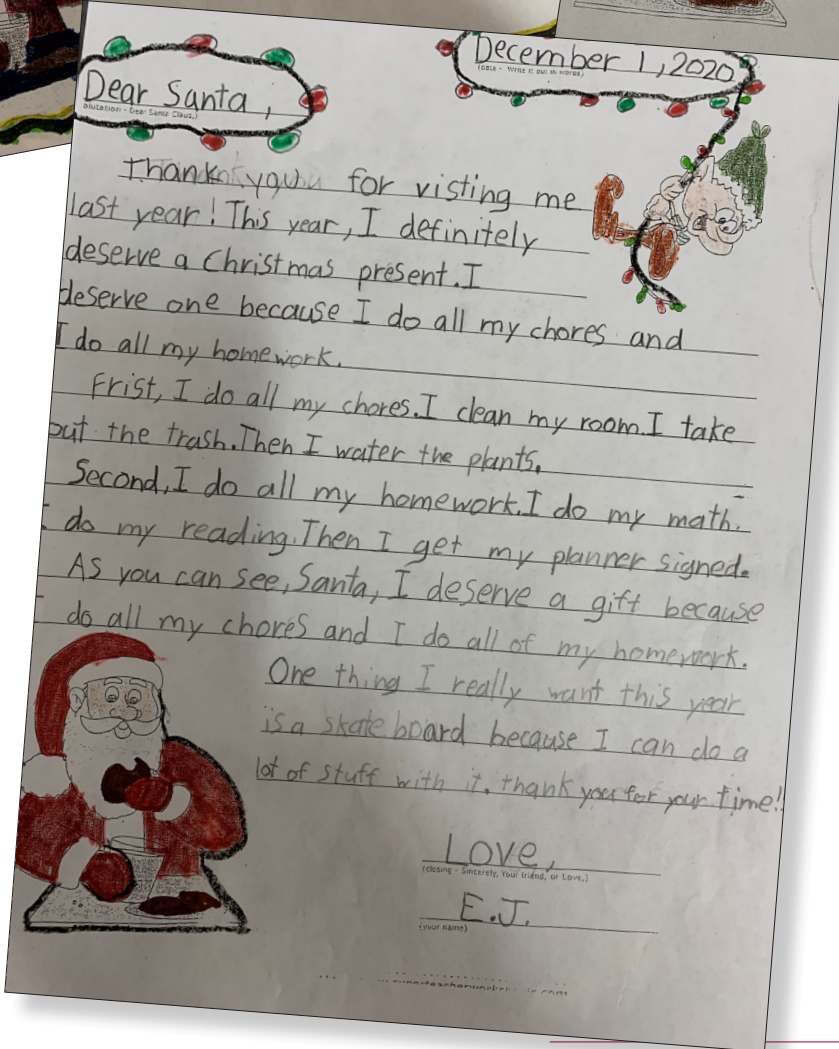 December 1, 2020
(date - Write it out in words)
Dear Santa,
(salutation - Dear Santa Claus,)
Thank you for visting me
last year! This year, I definitely
deserve a Christmas present. I
deserve one because I do all my chores and
I do all my homework.
Frist, I do all my chores. I clean my room. I take
out the trash. Then I water the plants.
Second, I do all my homework. I do my math.
I do my reading. Then I get my planner signed.
As you can see, Santa, I deserve a gift because
I do all my chores and I do all of my homework.
One thing I really want this year
is a skate board because I can do a
lot of stuff with it. thank you for your time!!
Love,
(closing - Sincerely, Your friend, or Love,)
E.J.
(your name)